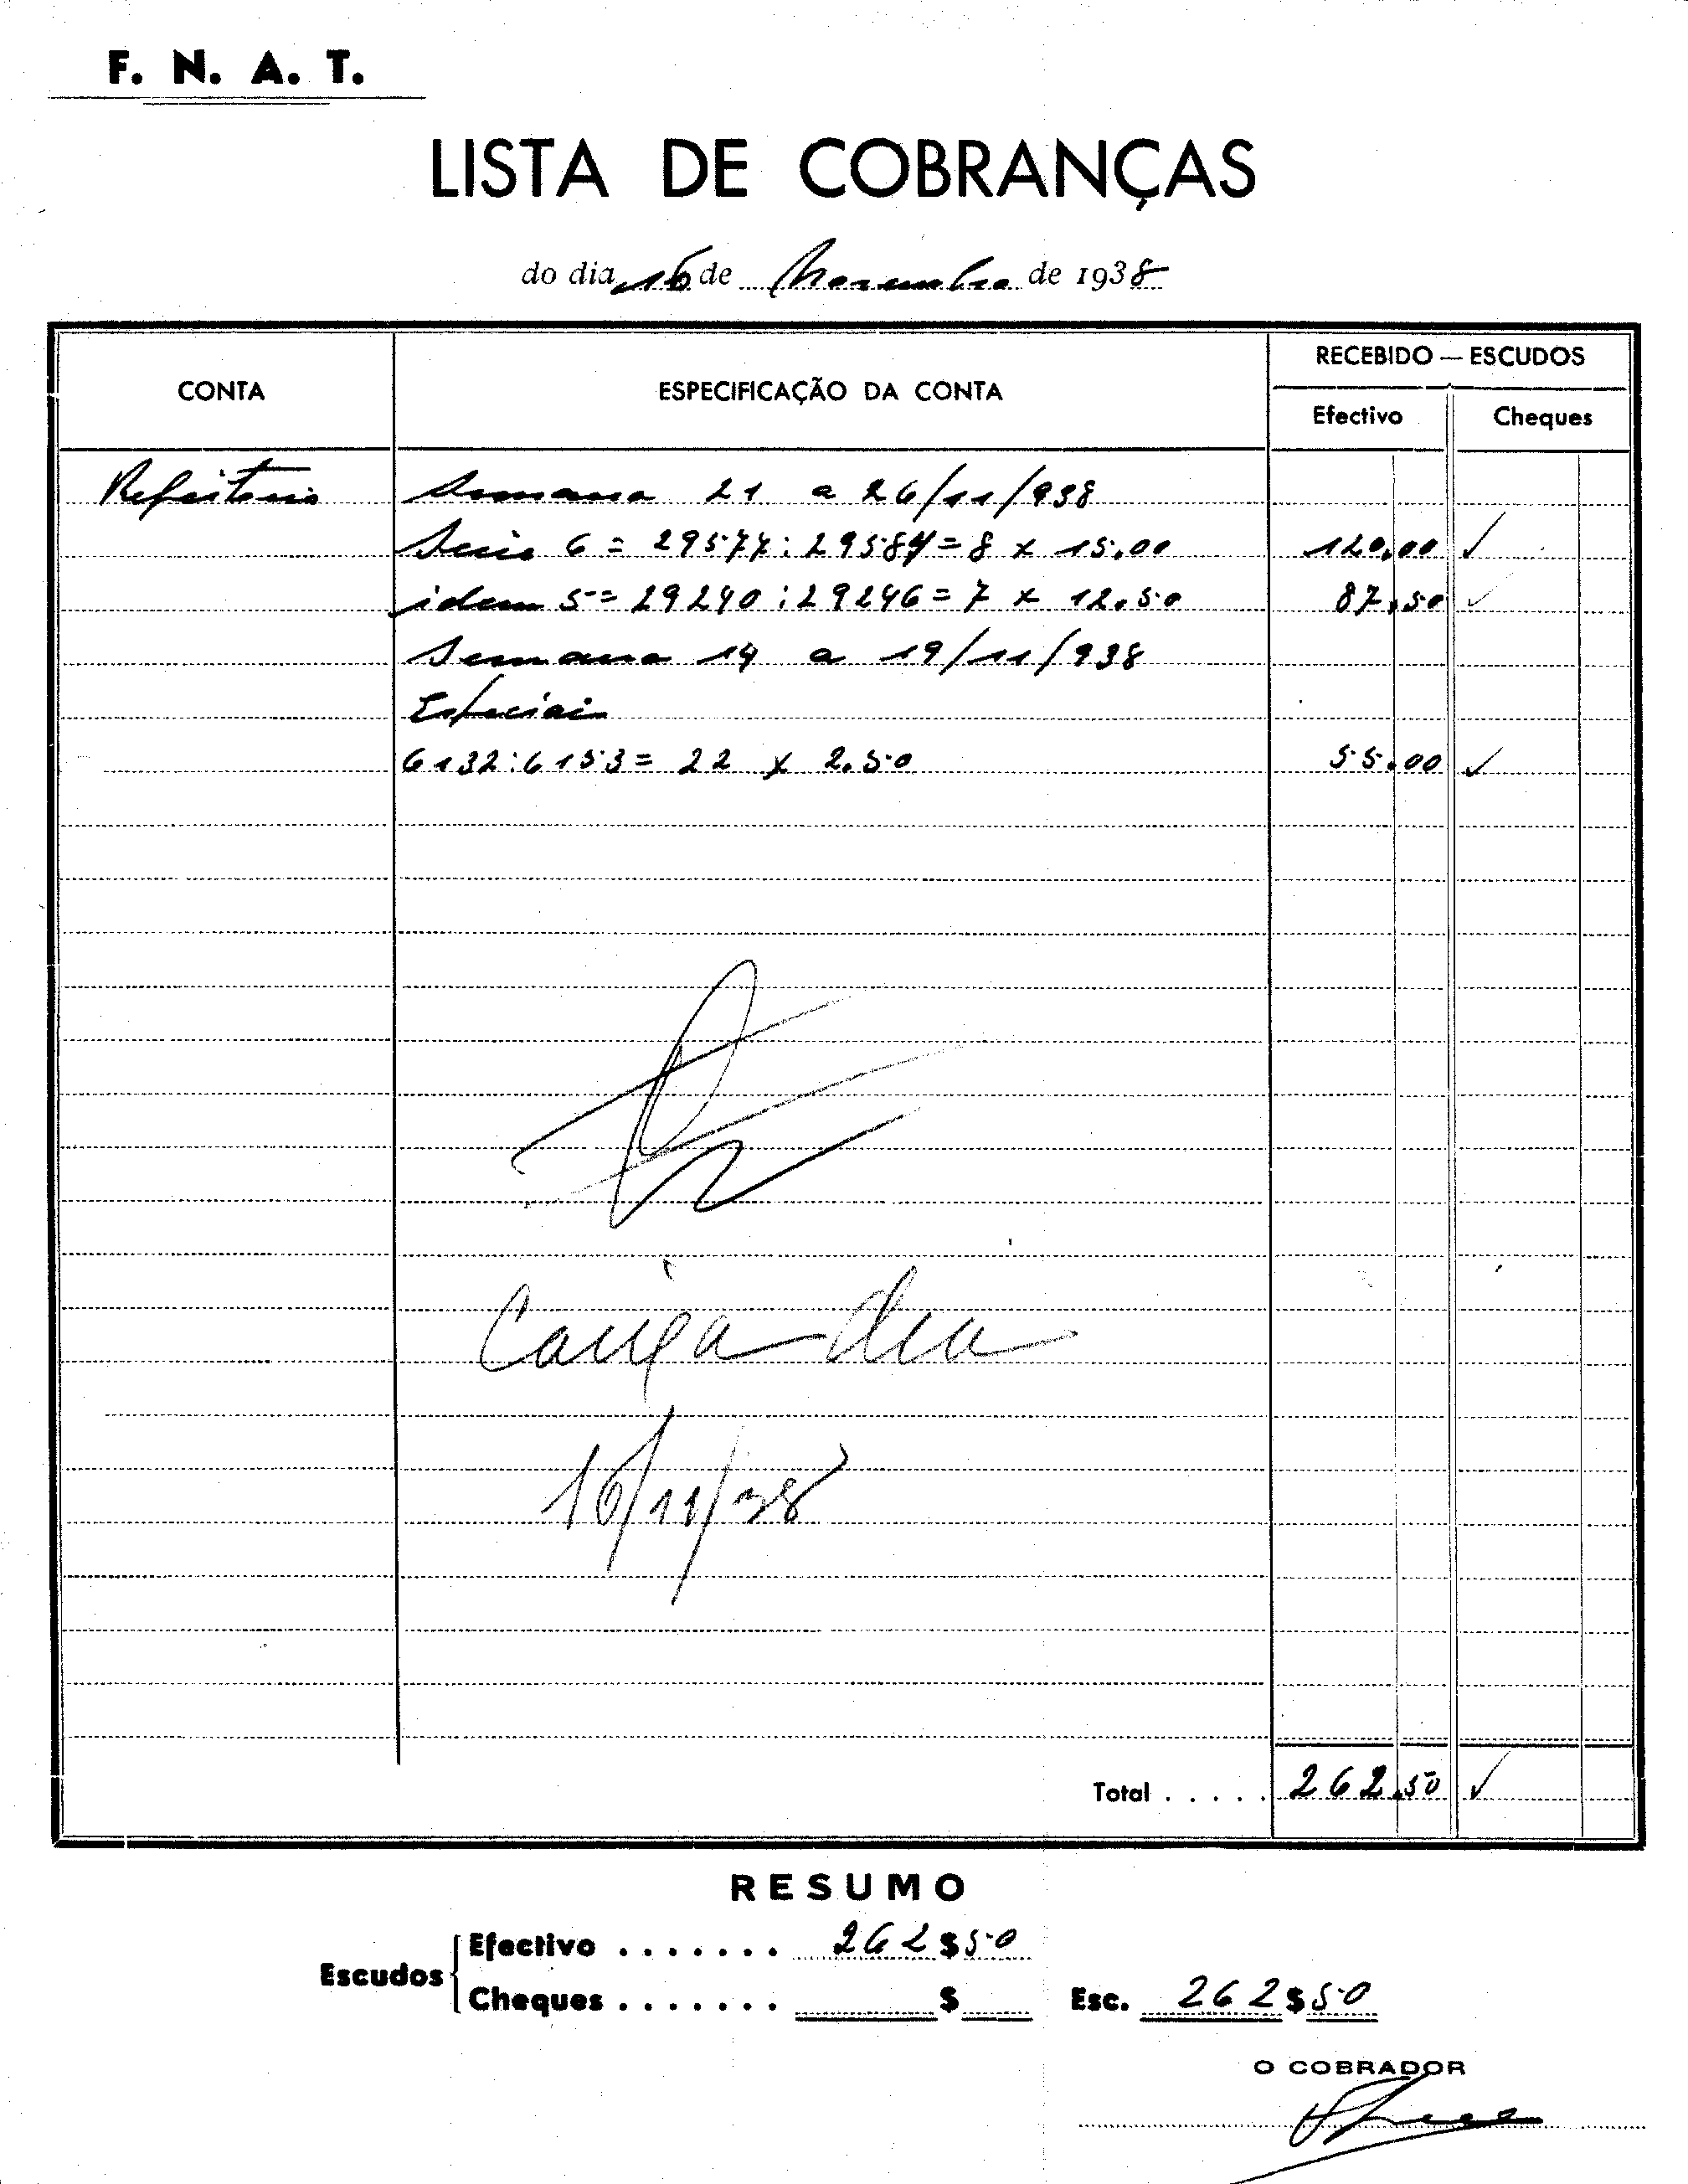 F. N. A. T.
LISTA DE COBRANÇAS
do dia 16 de Novembro de 1938
CONTA
ESPECIFICAÇÃO DA CONTA
RECEBIDO — ESCUDOS
Efectivo
Cheques
Refeitorio Semana 21 a 26/11/938
Serie 6 = 29577:29584 = 8 x 15.00 120.00 ✓
idem 5 = 29240:29246 = 7 x 12.50 87.50 ✓
Semana 14 a 19/11/938
Especiai
6132:6153 = 22 x 2.50 55.00 ✓
16/11/38
Total . . . . . 262.50 ✓
RESUMO
Escudos
Efectivo . . . . . . . 262$50
Cheques . . . . . . . $
Esc. 262$50
O COBRADOR